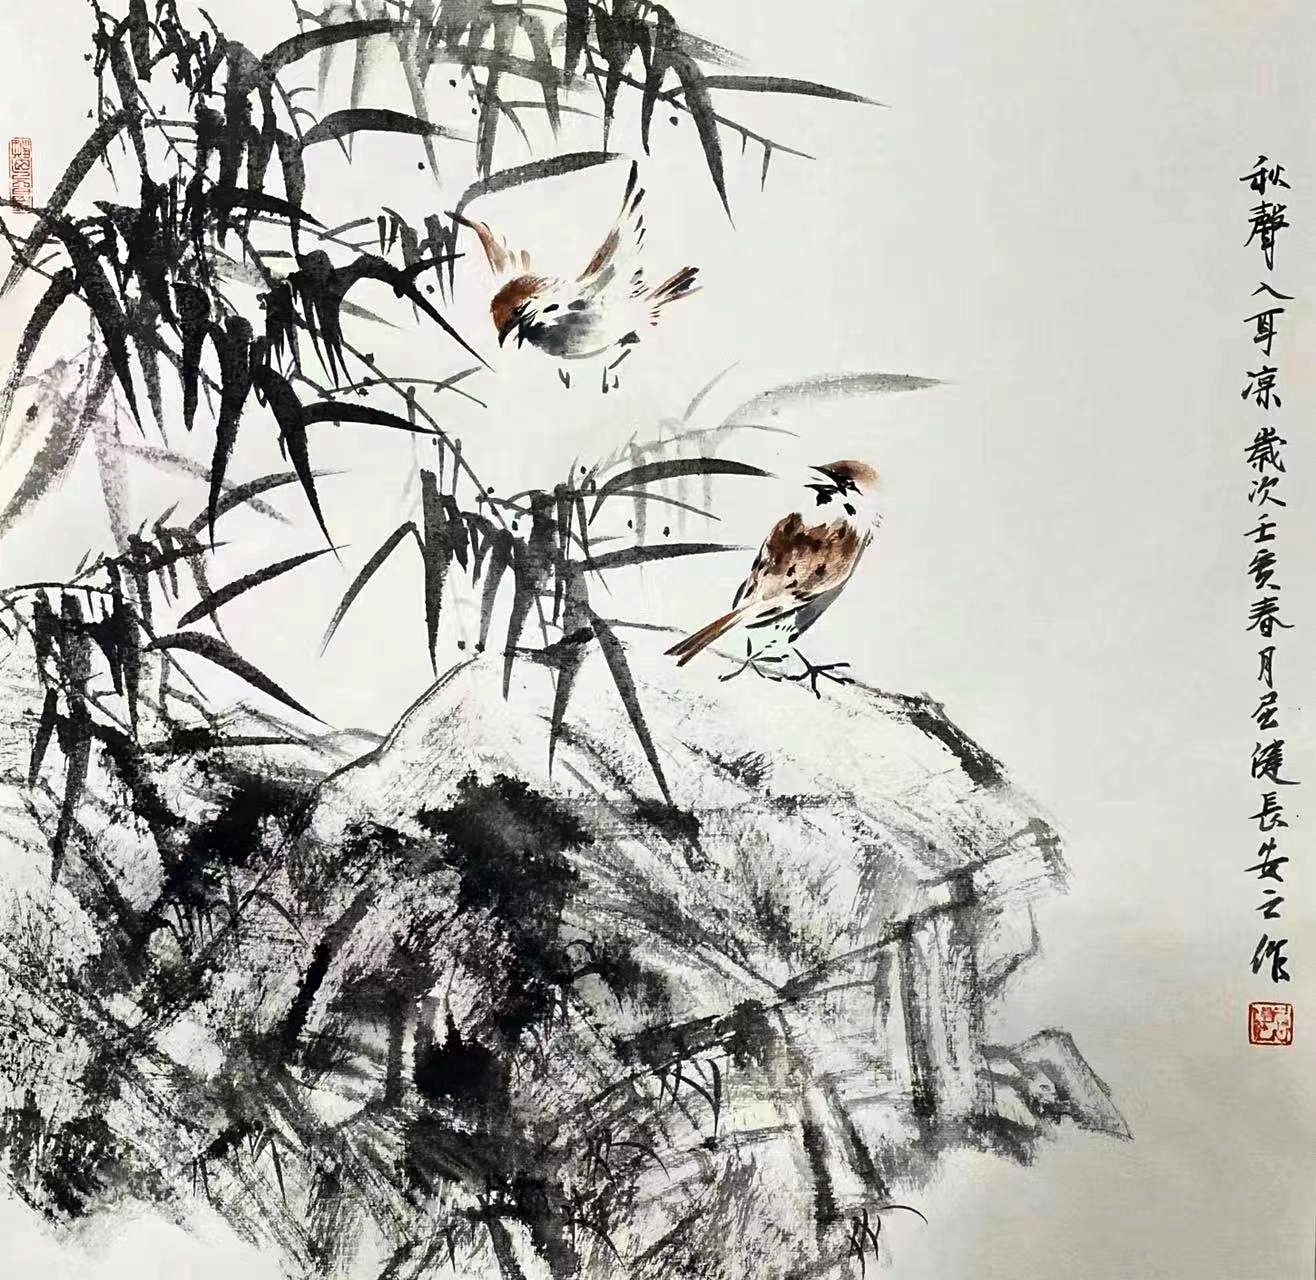 秋聲入耳凉 歲次壬寅春月屈健長安之作